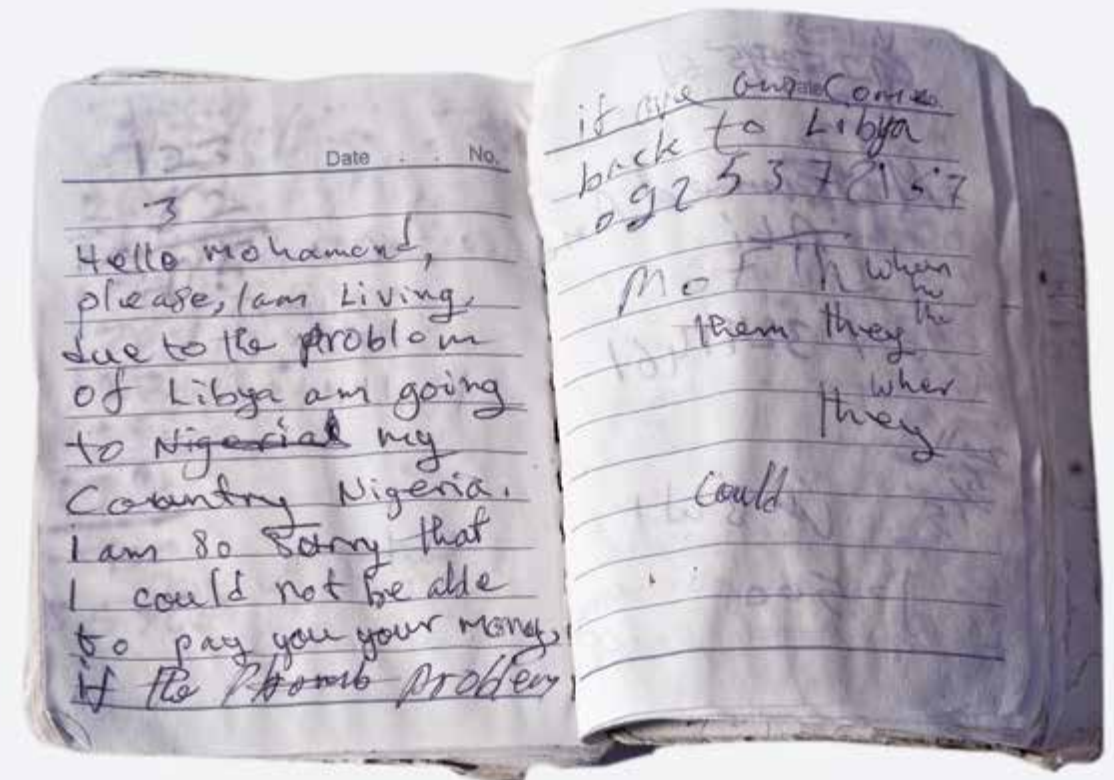 Date . . No.
3
Hello mohamend,
please, I am Living,
due to the problom
of Libya am going
to Nigeria my
Country Nigeria.
I am so Sorry that
I could not be able
to pay you your money,
if the problem
if Come
back to Libya
when
them they the
wher
they
Could